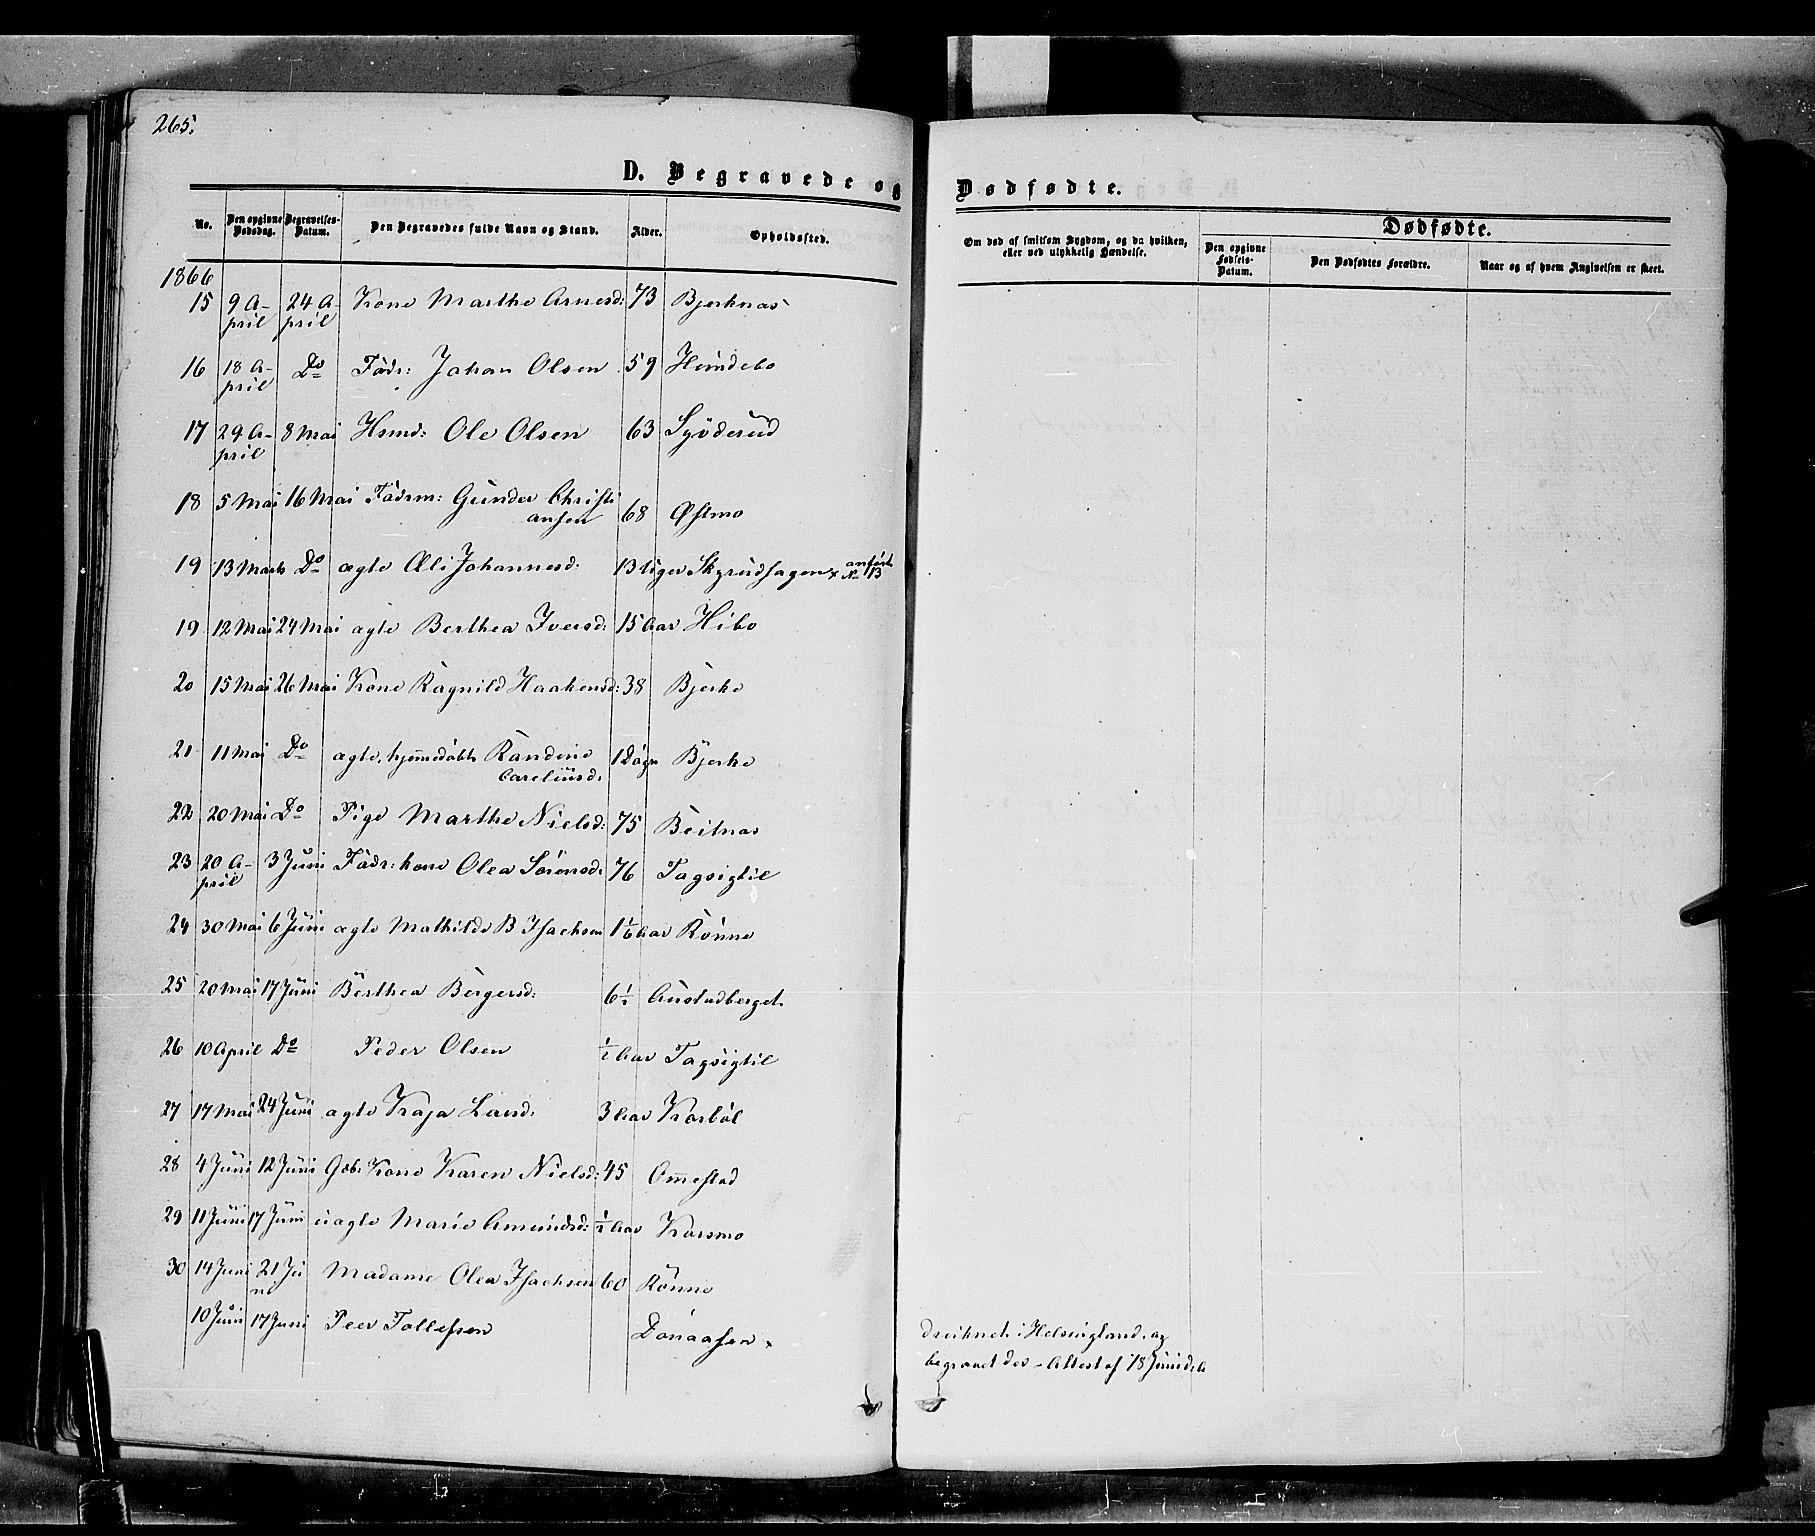 265.
D. Begravede og Dødfødte.
No. Den opgivne Dødsdag. Begravelses-Datum. Den Begravedes fulde Navn og Stand. Alder. Opholdssted. Om død af smitsom Sygdom, og da hvilken, eller ved ulykkelig Hændelse. Dødfødte.
Den opgivne Fødsels-Datum. Den Dødfødtes Forældre. Naar og af hvem Angivelsen er skeet.
1866
15 9 A- 24 A- Kone Marthe Arnesd: 73 Bjerknæs
pril pril
16 18 A- Do Födr: Johan Olsen 59 Hemdebo
pril
17 29 A- 8 Mai Hsmd: Ole Olsen 63 Syöderud
pril
18 5 Mai 16 Mai Födrm: Gunder Christi
ansen 68 Østmo
19 13 Marts Do ægte Æli Johannesd: 13 Uger Skyrudhagen × anfört
No 13
19 12 Mai 24 Mai ægte Berthea Iversd: 15 Aar Hibo
20 15 Mai 26 Mai Kone Ragnild Haakensd: 38 Bjerke
21 11 Mai Do ægte, hjemmedöbt Randine 1 Dögn Bjerke
Careliusd.
22 20 Mai Do Pige Marthe Nielsd: 75 Beitnæs
23 20 A- 3 Juni Födr: kone Olea Sörensd: 76 Tagsigtil
pril
24 30 Mai 6 Juni ægte Mathilde B Isachsen 1½ Aar Rönne
25 20 Mai 17 Juni Berthea Börgersd: 6½ Austadberget
26 10 April Do Peder Olsen ½ Aar Tagsigtil
27 17 Mai 24 Juni ægte Kaja Larsd: 3 Aar Korböl
28 4 Juni 12 Juni Gbr. Kone Karen Nielsd: 45 Ommestad
29 11 Juni 17 Juni uægte Marie Amundsd: ½ Aar Korsmo
30 14 Juni 21 Ju Madame Olea Isachsen 60 Rönne
ni
10 Juni 17 Juni Peer Tollefsen Dönaasen × druknet i Helsingland, og
begravet der – Attest af 18 Juni